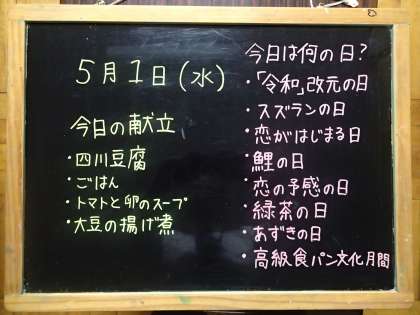 5月1日(水)
今日の献立
・四川豆腐
・ごはん
・トマトと卵のスープ
・大豆の揚げ煮
今日は何の日?
・「令和」改元の日
・スズランの日
・恋がはじまる日
・鯉の日
・恋の予感の日
・緑茶の日
・あずきの日
・高級食パン文化月間